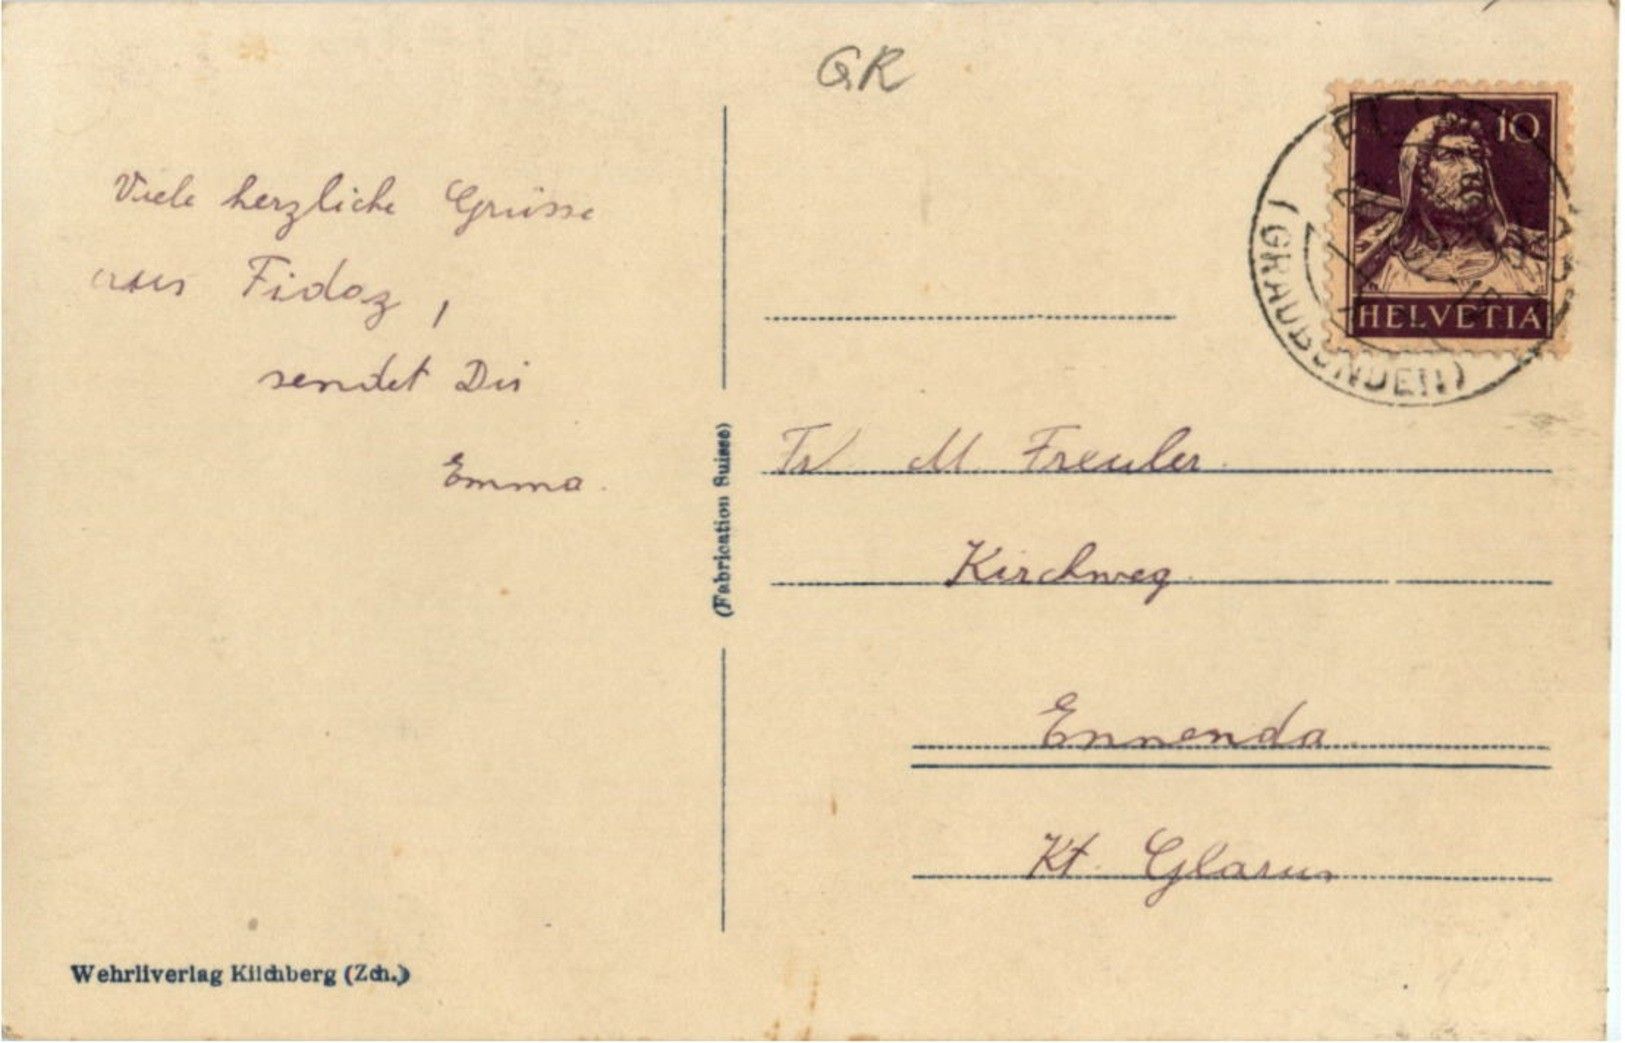 GR
Viele herzliche Grüsse
aus Fidaz,
sendet Dir
Emma.
10
HELVETIA
(GRAUBÜNDEN)
Fr M Freuler.
Kirchweg.
Ennenda.
Kt. Glarus
(Fabrication Suisse)
Wehrliverlag Kilchberg (Zch.)